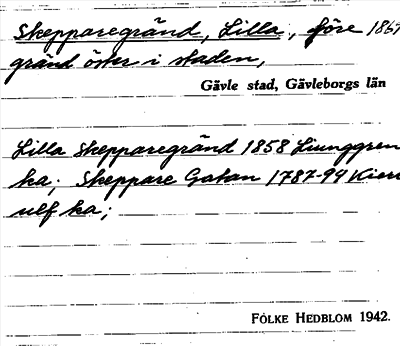 Skepparegränd, Lilla, före 1867
gränd öster i staden,
Gävle stad, Gävleborgs län
Lilla Skepparegränd 1858 Ljunggren
ka; Skeppare Gatan 1787-94 Kierr
ulf ka;
FOLKE HEDBLOM 1942.